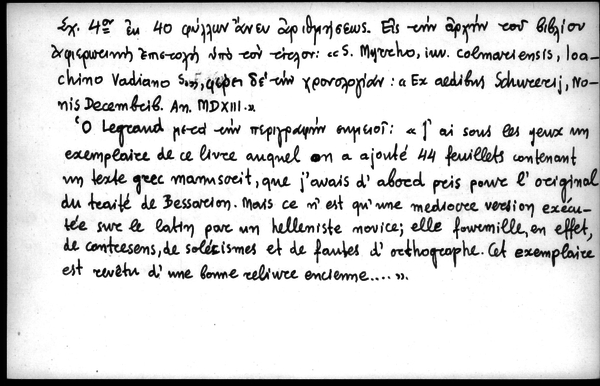 Σχ. 4ον ἐκ 40 φύλλων ἄνευ ἀριθμήσεως. Εἰς τὴν ἀρχὴν τοῦ βιβλίου
ἀφιερωτικὴ ἐπιστολὴ ὑπὸ τὸν τίτλον: «S. Myrrho, iuv. colmariensis, Ioa-
chino Vadiano S.», φέρει δὲ τὴν χρονολογίαν: «Ex aedibus Schurerij, No-
nis Decembrib. An. MDXIII.»
Ὁ Legrand μετὰ τὴν περιγραφὴν σημειοῖ: «J'ai sous les yeux un
exemplaire de ce livre auquel on a ajouté 44 feuillets contenant
un texte grec manuscrit, que j'avais d'abord pris pour l'original
du traité de Bessarion. Mais ce n'est qu'une mediocre version exécu-
tée sur le latin par un helleniste novice; elle fourmille, en effet,
de contresens, de solécismes et de fautes d'orthographe. Cet exemplaire
est revêtu d'une bonne reliure encienne....».